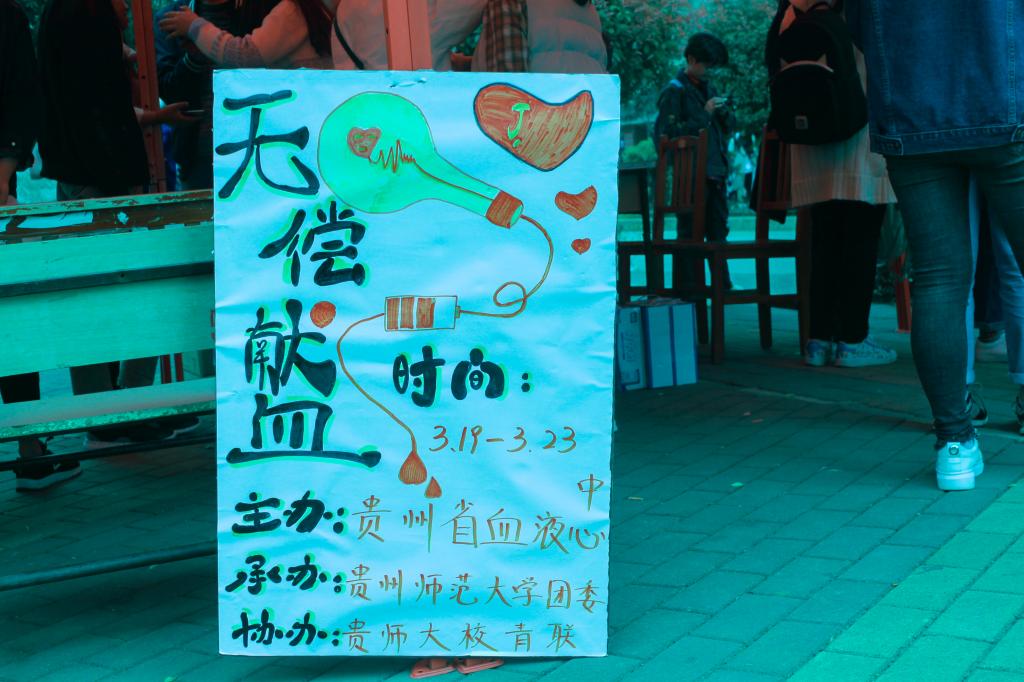 无偿献血
时间：
3.19-3.23
主办：贵州省血液中心
承办：贵州师范大学团委
协办：贵师大校青联